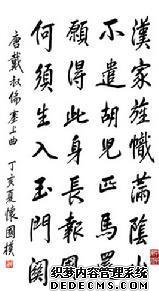 漢家旌幟滿陰山
不遣胡兒匹馬還
願得此身長報國
何須生入玉門關
唐戴叔倫塞上曲 丁亥夏懷國
织梦内容管理系统
DEDECMS.COM